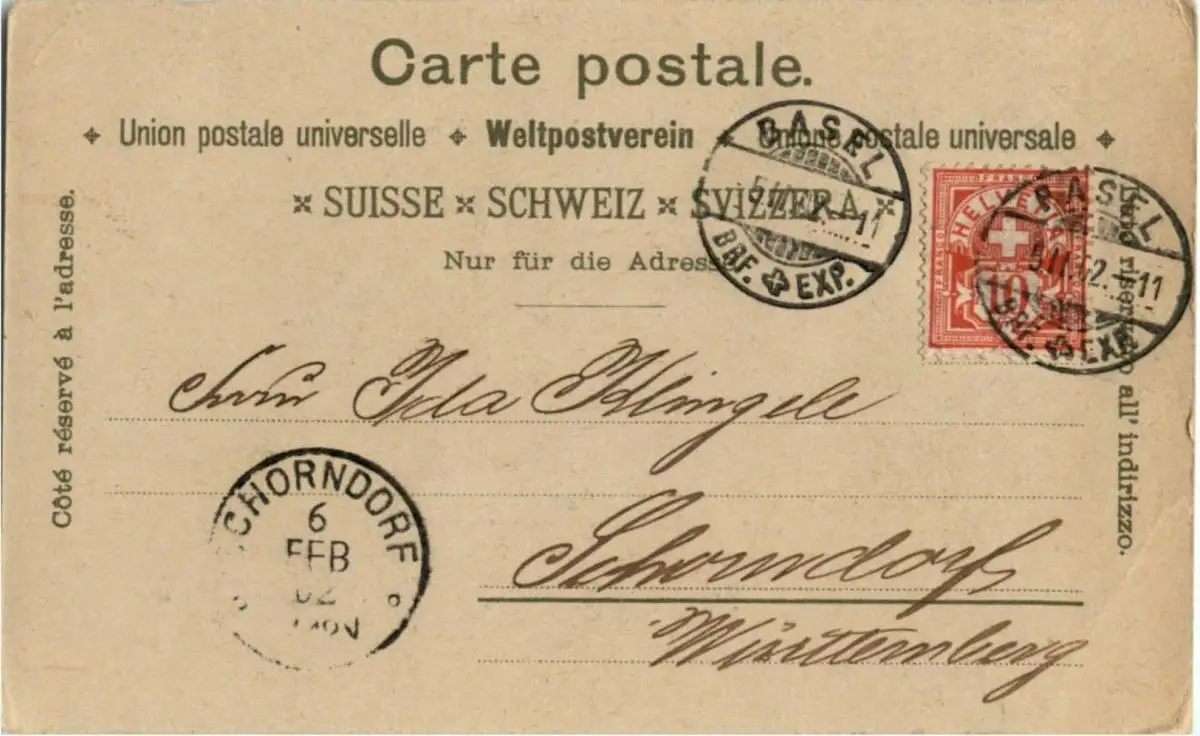 Carte postale.
Union postale universelle Weltpostverein Unione postale universale
SUISSE SCHWEIZ SVIZZERA
Nur für die Adresse
Côté réservé à l'adresse.
Lato riservato all' indirizzo.
BASEL
BRF. EXP.
FRANCO
HELVETIA
10
BASEL
BRF. EXP.
Ida Klingele
Schorndorf
Württemberg
SCHORNDORF
6
FEB
02